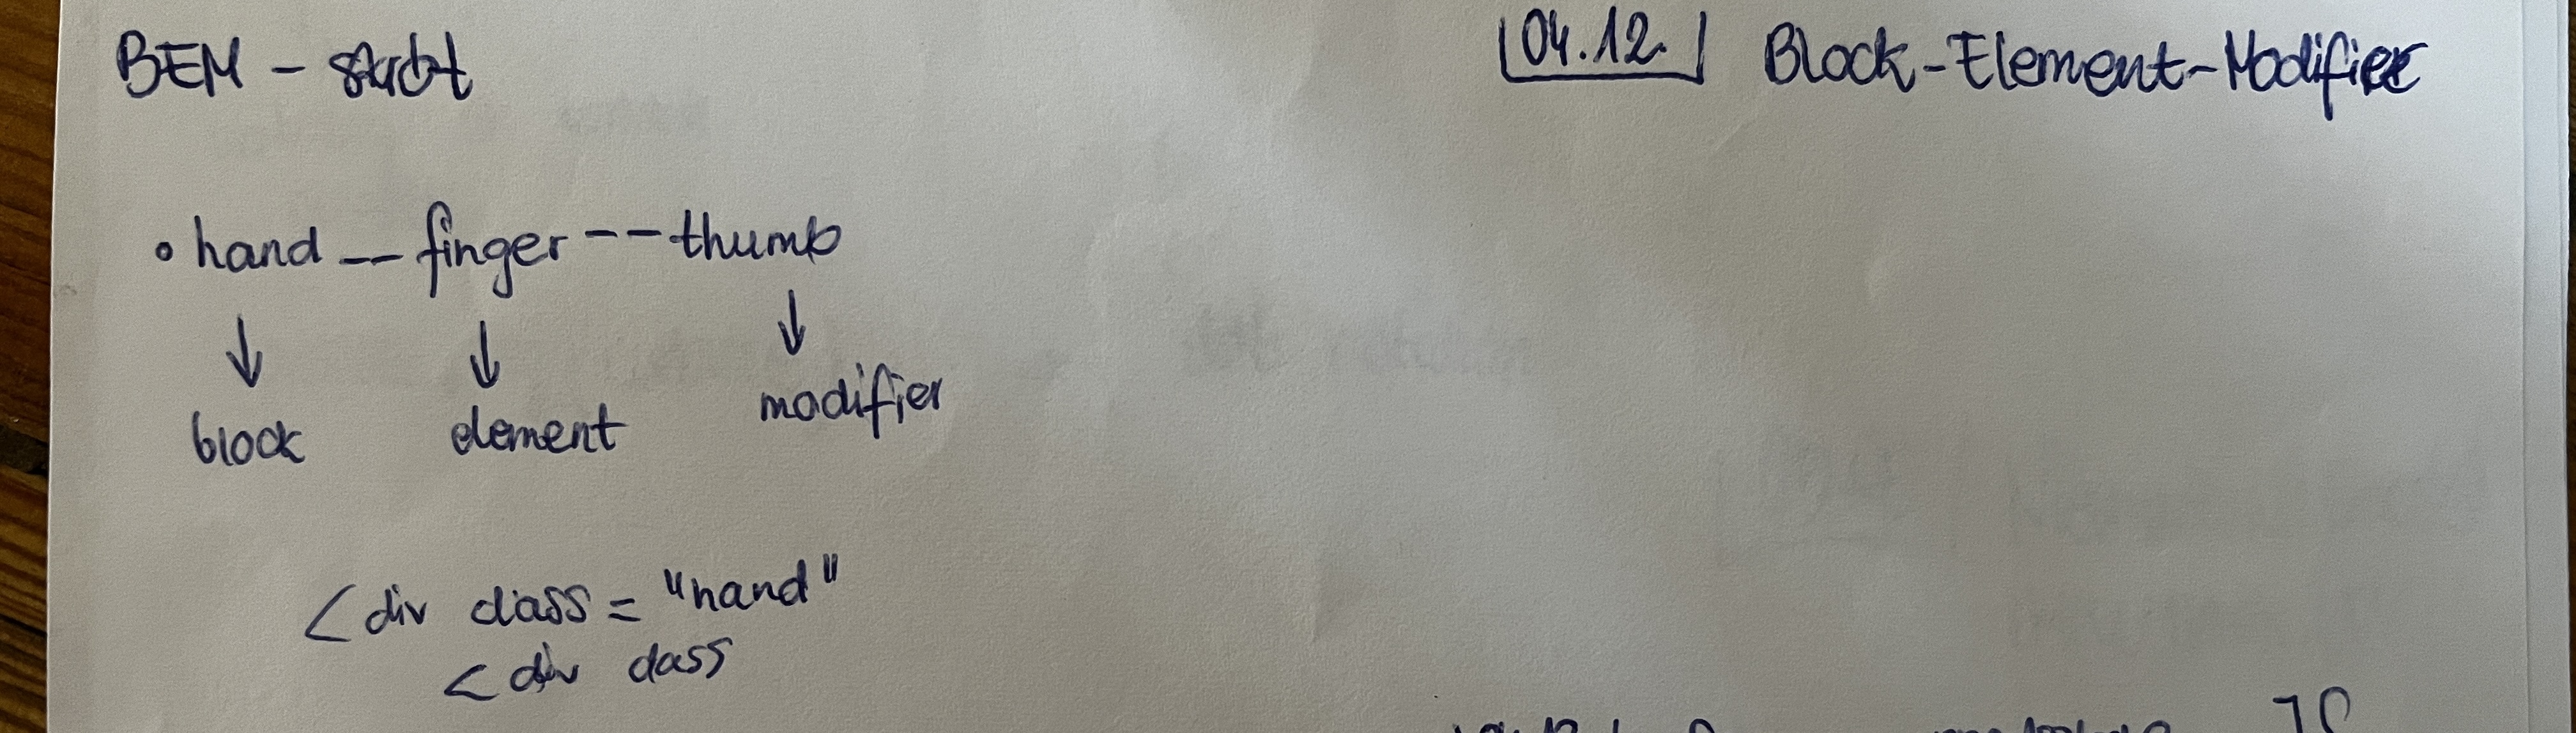 BEM -
04.12. Block-Element-Modifier
• hand __ finger -- thumb
↓ ↓ ↓
block element modifier
<div class = "hand"
<div class